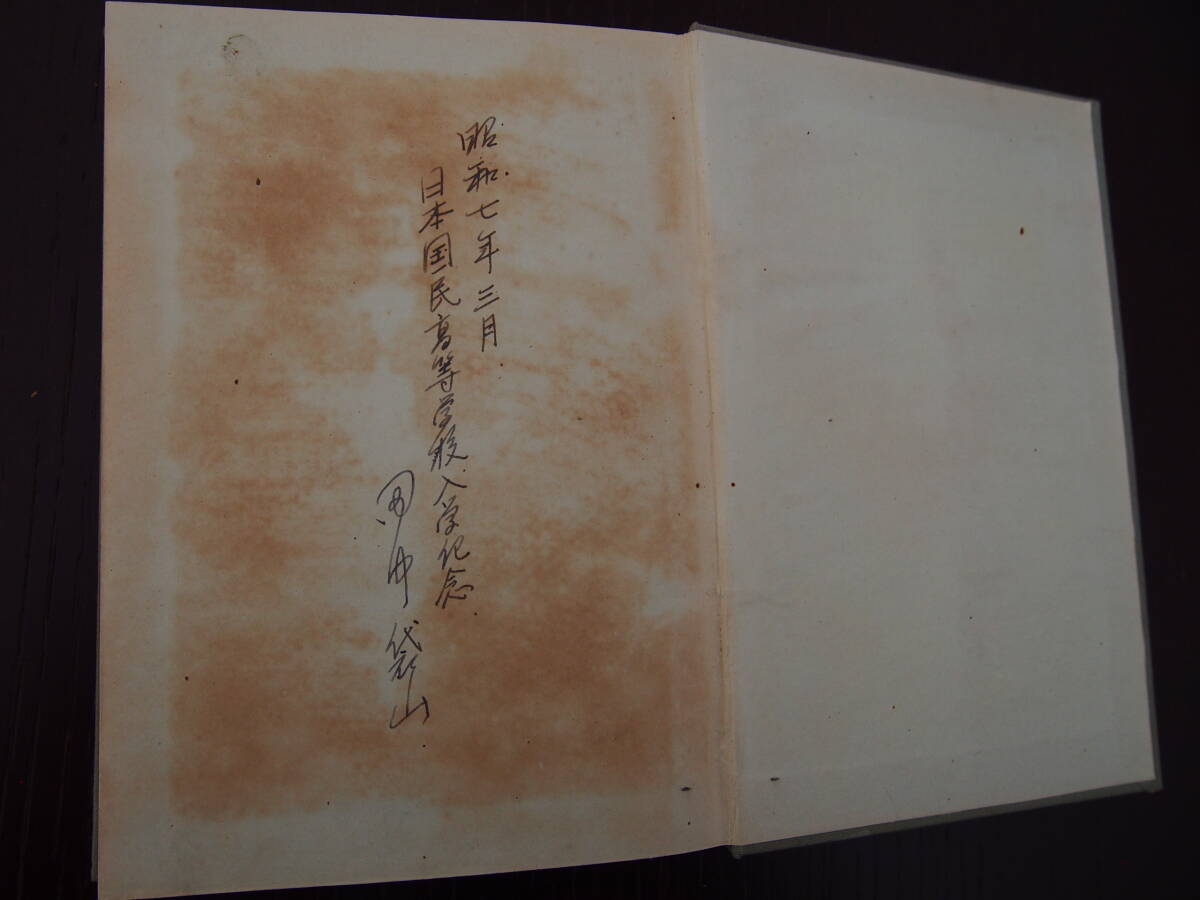 昭和七年三月
日本国民高等学校入学記念
田中 袋山